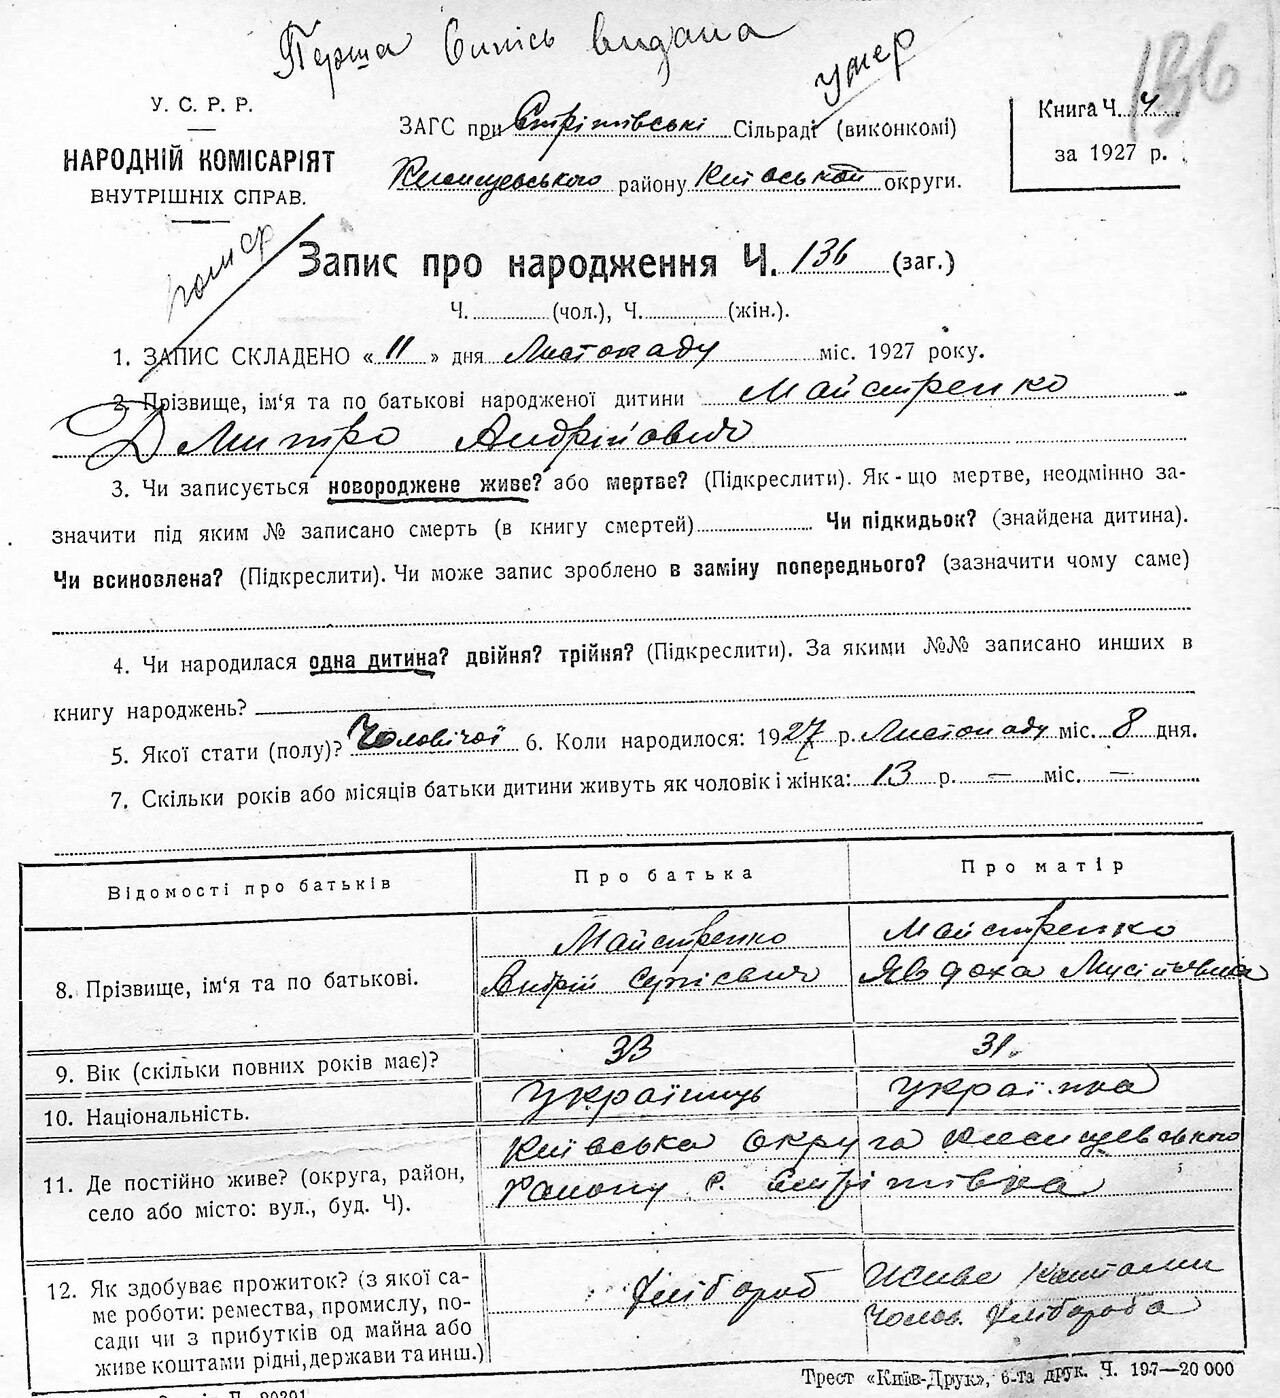 Перша Випись видана
умер
136
У. С. Р. Р.
НАРОДНІЙ КОМІСАРІЯТ
ВНУТРІШНІХ СПРАВ.
ЗАГС при Стрітівські Сільраді (виконкомі)
району Київськой округи.
Книга Ч. 4
за 1927 р.
помер
Запис про народження Ч. 136 (заг.)
Ч. (чол.), Ч. (жін.).
1. ЗАПИС СКЛАДЕНО « 11 » дня Листопаду міс. 1927 року.
2. Прізвище, ім‘я та по батькові народженої дитини Майстренко
Дмитро Андрійович
3. Чи записується новороджене живе? або мертве? (Підкреслити). Як-що мертве, неодмінно за-
значити під яким № записано смерть (в книгу смертей) Чи підкидьок? (знайдена дитина).
Чи всиновлена? (Підкреслити). Чи може запис зроблено в заміну попереднього? (зазначити чому саме)
4. Чи народилася одна дитина? двійня? трійня? (Підкреслити). За якими №№ записано инших в
книгу народжень?
5. Якої стати (полу)? Чоловічої 6. Коли народилося: 1927 р. Листопаду міс. 8 дня.
7. Скільки років або місяців батьки дитини живуть як чоловік і жінка: 13 р. — міс. —
Відомості про батьків Про батька Про матір
8. Прізвище, ім‘я та по батькові. Майстренко Майстренко
Андрій Явдоха Мусіївна
9. Вік (скільки повних років має)? 33 31.
10. Національність. Українець Українка
11. Де постійно живе? (округа, район,
село або місто: вул., буд. Ч).
Київська округа
Району с. Стрітівка
12. Як здобуває прожиток? (з якої са-
ме роботи: ремества, промислу, по-
сади чи з прибутків од майна або
живе коштами рідні, держави та инш.)
Хлібороб Живе Коштами
Чолов. Хлібороба
Трест «Київ-Друк», 6-та друк. Ч. 197—20 000